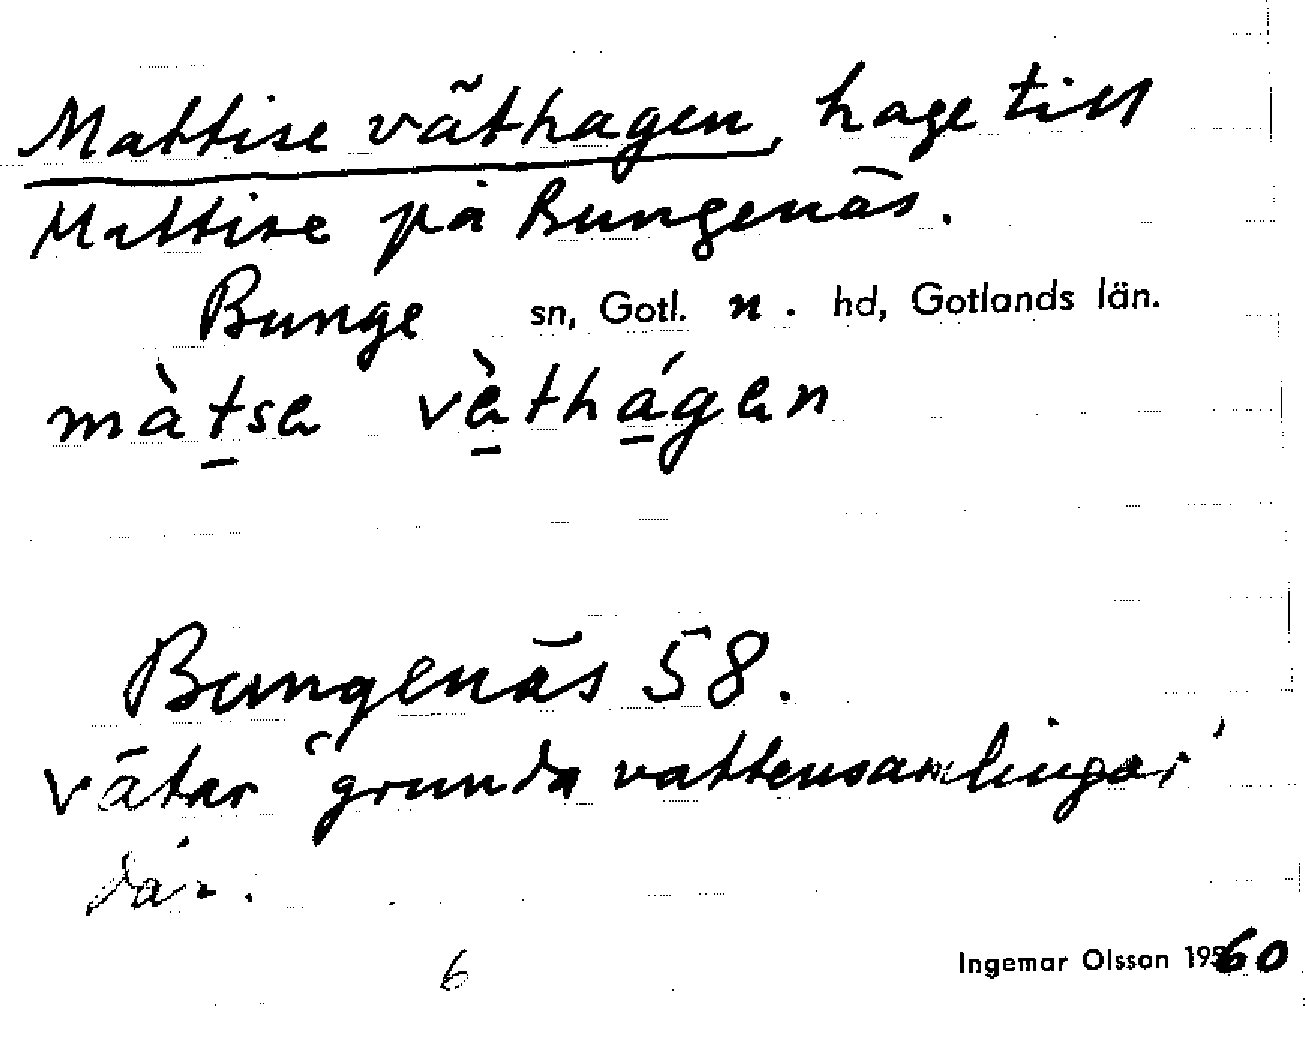 Mattise väthagen, hage till
Mattise på Bungenäs.
Bunge sn, Gotl. n. hd, Gotlands län.
màtse vèthágen
Bungenäs 58.
vätar "grunda vattensamlingar"
där.
6 Ingemar Olsson 1960